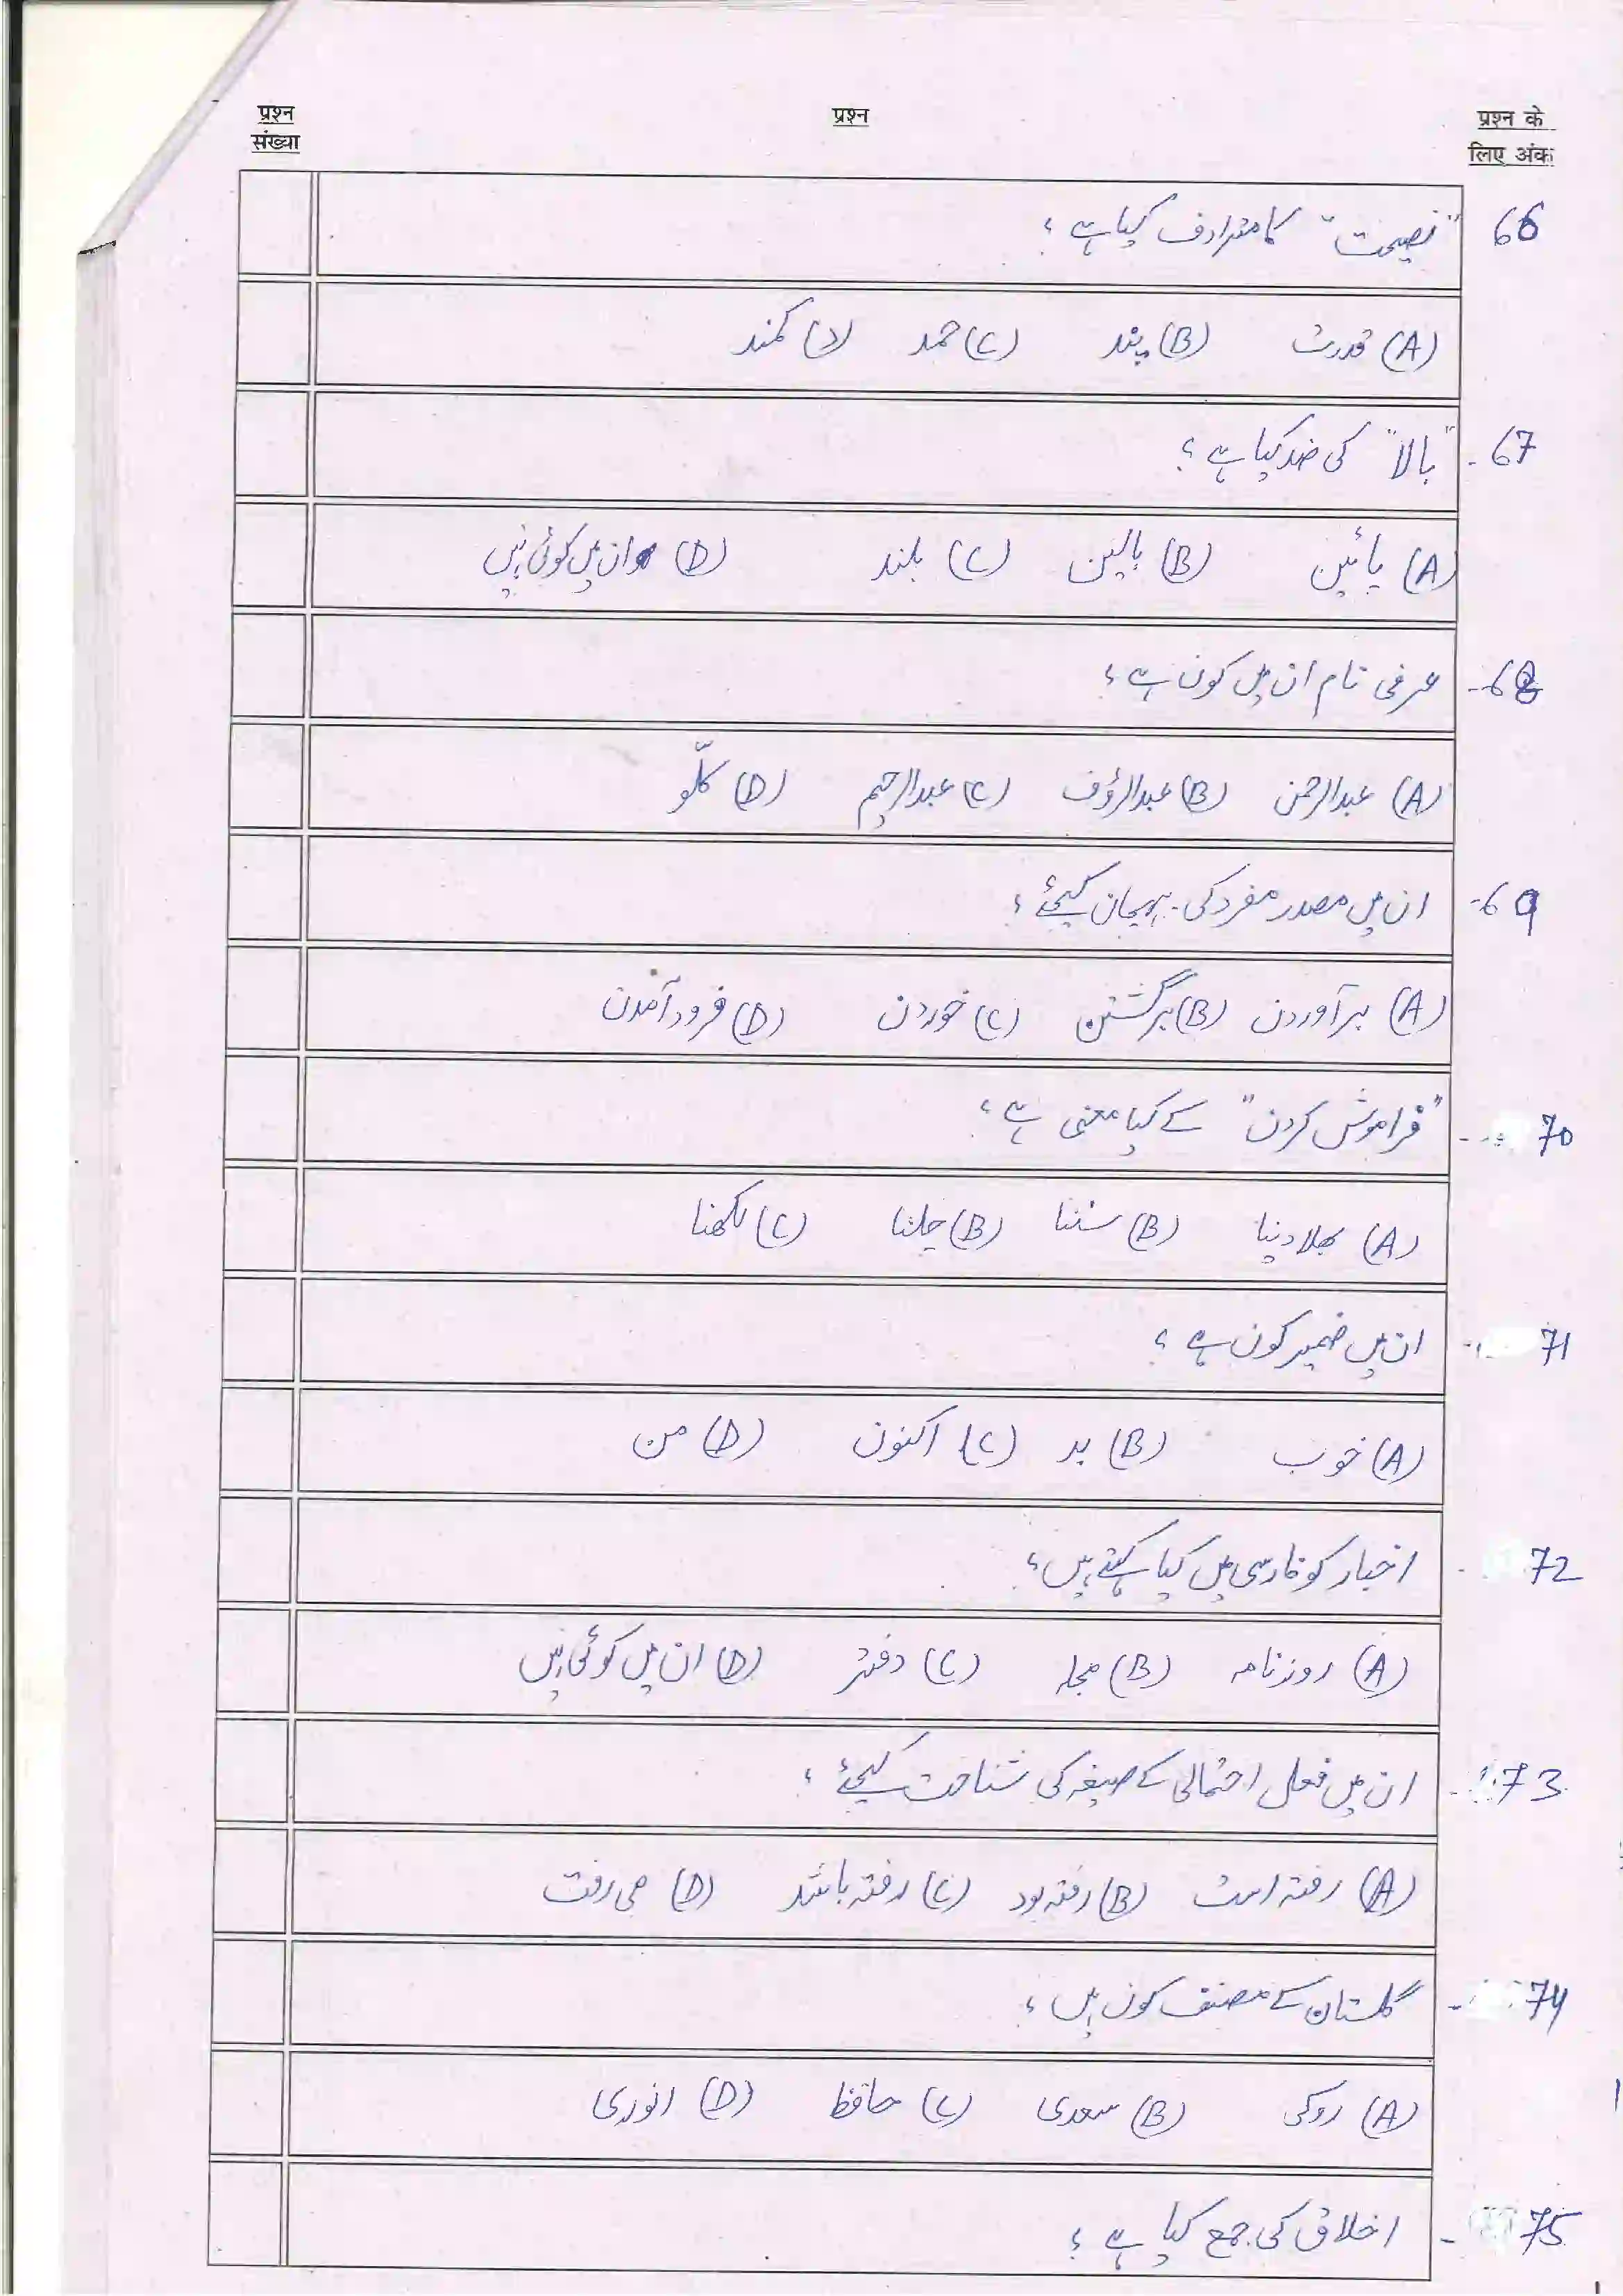 प्रश्न संख्या
प्रश्न
प्रश्न के लिए अंक
66 "نصیحت" کا مترادف کیا ہے؟
(A) قدرت (B) پند (C) حمد (د) کمند
67- "بالا" کی ضد کیا ہے؟
(A) پائین (B) بالین (C) بلند (D) ان میں کوئی نہیں
68- عرفی نام ان میں کون ہے؟
(A) عبدالرحمن (B) عبدالرؤف (C) عبدالرحیم (D) کلّو
69- ان میں مصدر مفرد کی پہچان کیجئے؟
(A) برآوردن (B) برگشتن (C) خوردن (D) فرود آمدن
70- "فراموش کردن" کے کیا معنی ہے؟
(A) بھلا دینا (B) سننا (B) چلنا (C) لکھنا
71- ان میں ضمیر کون ہے؟
(A) خوب (B) بد (C) اکنون (D) من
72- اخبار کو فارسی میں کیا کہتے ہیں؟
(A) روزنامہ (B) مجلہ (C) دفتر (D) ان میں کوئی نہیں
73- ان میں فعل احتمالی کے صیغہ کی شناخت کیجئے؟
(A) رفتہ است (B) رفتہ بود (C) رفتہ باشد (D) می رفت
74- گلستان کے مصنف کون ہیں؟
(A) رودکی (B) سعدی (C) حافظ (D) انوری
75- اخلاق کی جمع کیا ہے؟